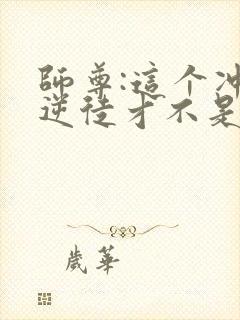 師尊:這个冲
逆徒才不是
歲華